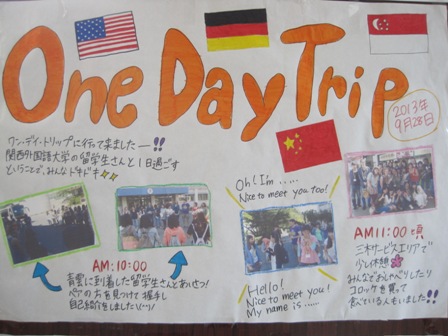 One Day Trip
2013年
9月28日
ワン・デイ・トリップに行って来ましたー!!
関西外国語大学の留学生さんと1日過ごす
ということで、みんなドキドキ
AM:10:00
青雲に到着した留学生さんとあいさつ!
ペアの方を見つけて握手し
自己紹介をしました
Oh! I'm .....
Nice to meet you too!
Hello!
Nice to meet you!
My name is .....
AM11:00頃
三木サービスエリアで
少し休憩
みんなでおしゃべりしたり
コロッケを買って
食べている人もいました!!